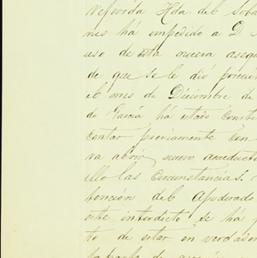 referida Hda del Sob
nes há impedido a D
uso de esta nueva aseq
de que se le dió princi
el mes de Diciembre de
de García há estos Contr
Contar previamente con
va abrir nuevo acueducto
ello las circunstancias.
tención del Apoderado
este interdicto se há p
to de estar en verdade